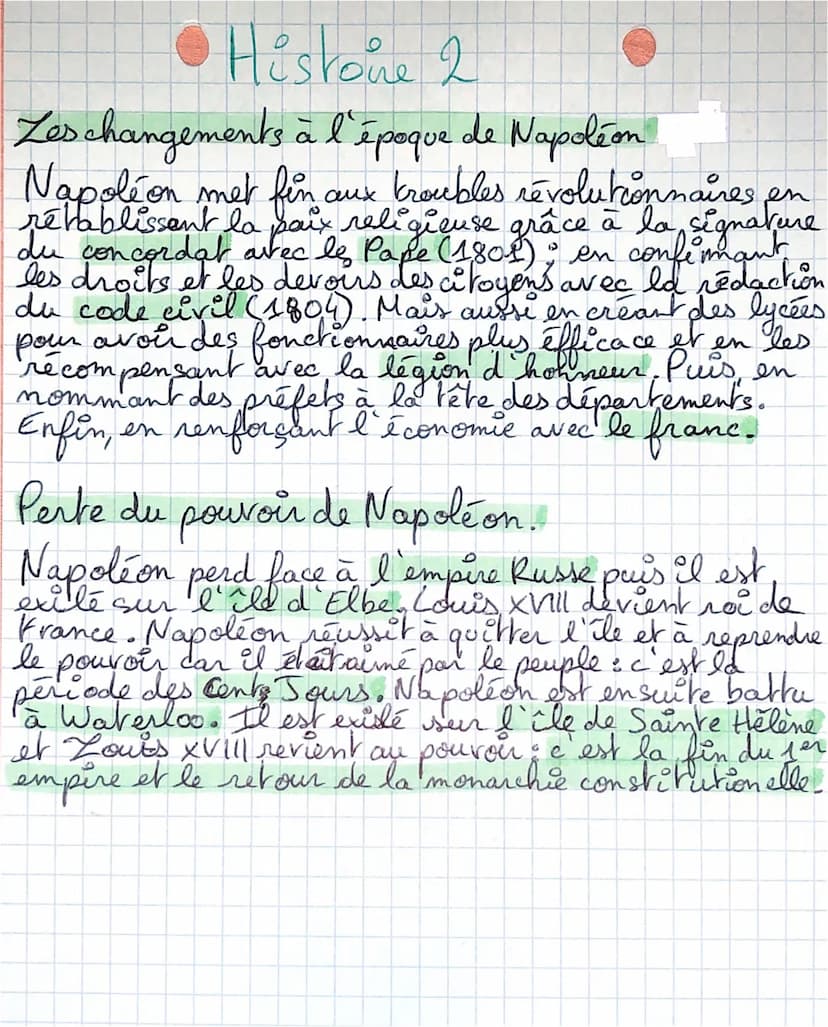 Histoire 2
Les changements à l'époque de Napoléon
Napoléon met fin aux troubles révolutionnaires en
rétablissant la paix religieuse grâce à la signature
du concordat avec le Pape (1801) ; en confirmant
les droits et les devoirs des citoyens avec la rédaction
du code civil (1804). Mais aussi en créant des lycées
pour avoir des fonctionnaires plus éfficace et en les
récompensant avec la légion d'honneur. Puis, en
nommant des préfets à la tête des départements.
Enfin, en renforçant l'économie avec le franc.
Perte du pouvoir de Napoléon.
Napoléon perd face à l'empire Russe puis il est
exilé sur l'île d'Elbe, Louis XVIII devient roi de
France. Napoléon réussit à quitter l'île et à reprendre
le pouvoir car il était aimé par le peuple : c'est la
période des Cents Jours. Napoléon est ensuite battu
à Waterloo. Il est exilé sur l'île de Sainte Hélène
et Louis XVIII revient au pouvoir : c'est la fin du 1er
empire et le retour de la monarchie constitutionelle.